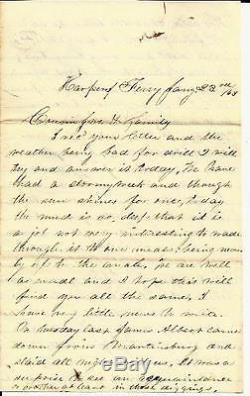 Harpers Ferry Jany 22nd /63
Cousin & Family
I recd your letter and the
weather being bad for drill I will
try and answer it today. We have
had a stormy week and though
the sun shines for once, to day
the mud is so deep that it is
a job not very interesting to wade
through it to one means being near
by up to the ankle. We are well
as usual and I hope this will
find you all the same. I
have very little news to write.
On tuesday last James Albert came
down from Martinsburg and
staid all night with us. It was a
surprise to see an acquaintance
or at least in these diggings.